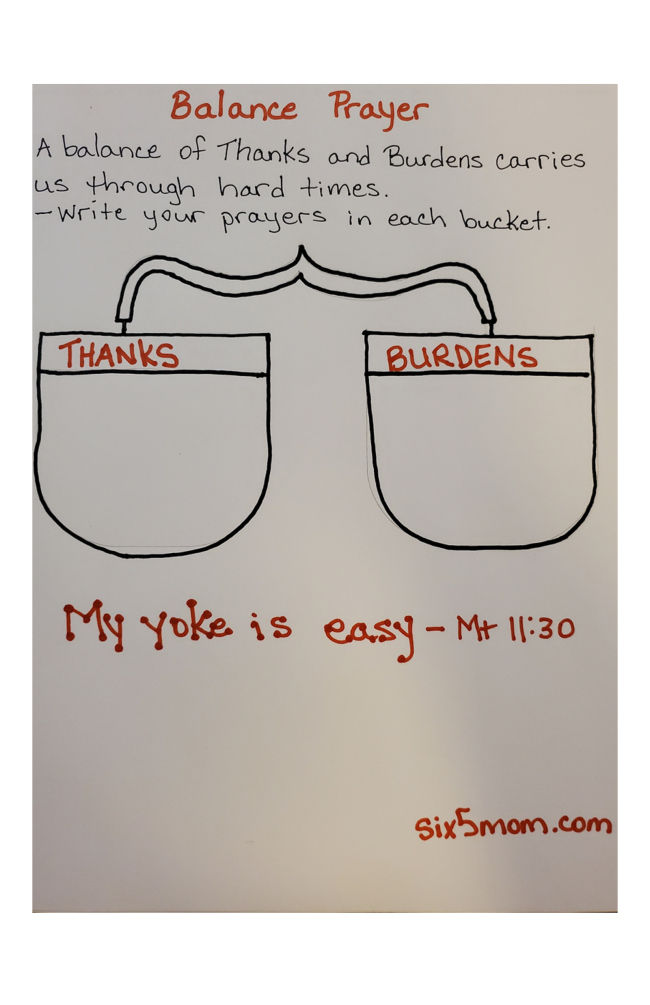 Balance Prayer
A balance of Thanks and Burdens carries
us through hard times.
-Write your prayers in each bucket.
THANKS
BURDENS
My yoke is easy - Mt 11:30
six5mom.com